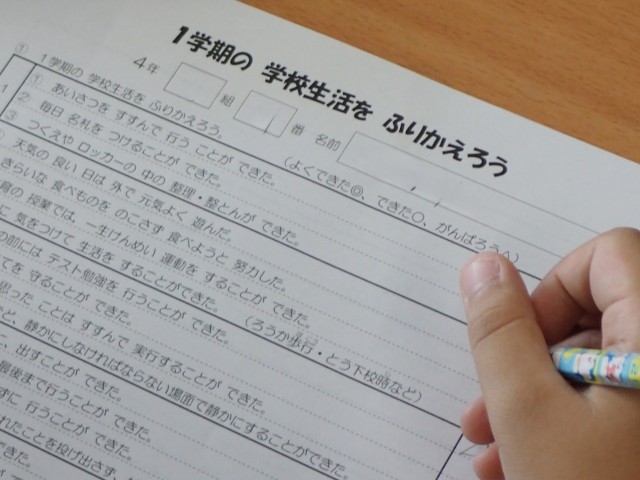 1学期の 学校生活を ふりかえろう
4年 組 番 名前
① 1学期の 学校生活を ふりかえろう。
(よくできた◎、できた○、がんばろう△)
1 ① あいさつを すすんで 行う ことが できた。
2. 毎日 名札を つけることが できた。
3 つくえや ロッカーの 中の 整理・整とんが できた。
天気の 良い 日は 外で 元気よく 遊んだ。
きらいな 食べものを のこさず 食べようと 努力した。
の 授業では、一生けんめい 運動を することが できた。
に 気をつけて 生活を することができた。 (ろうか歩行・とう下校時など)
の前には テスト勉強を 行うことが できた。
を 守ることが できた。
思った ことは すすんで 実行することが できた。
と、静かにしなければならない場面で静かにすることができた。
、出すことが できた。
最後まで行うことが できた。
ずに 行うことが できた。
れたことを投げ出さず、
できた。